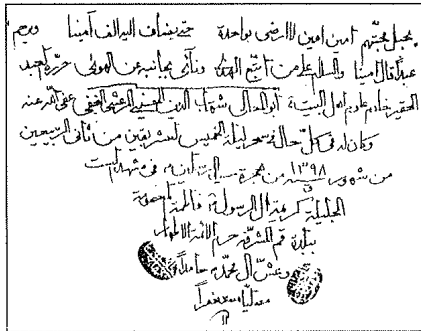 بحبل محبتهم آمین آمین لا ارضی بواحدة حتی یضاف الیه الف آمینا ویرحم
عبداً قال آمینا والسلام علی من اتبع الهدی ونآئی بجانبه عن الهوی حرره العبد
الحقیر خادم علوم اهل البیت ابوالمعالی شهاب الدین الحسینی المرعشی النجفی عفی الله عنه
وکان له فی کل حال فی سحر لیلة الخمیس لستة بقین من ثانی الربیعین
من شهور ١٣٩٨ من هجرة فی مشهد الست
الجلیلة کریمة آل الرسول فاطمة المعصومة
ببلدة قم المشرفة حرم الائمة الاطهار
وعش آل محمد حامداً
مصلیاً مستغفراً